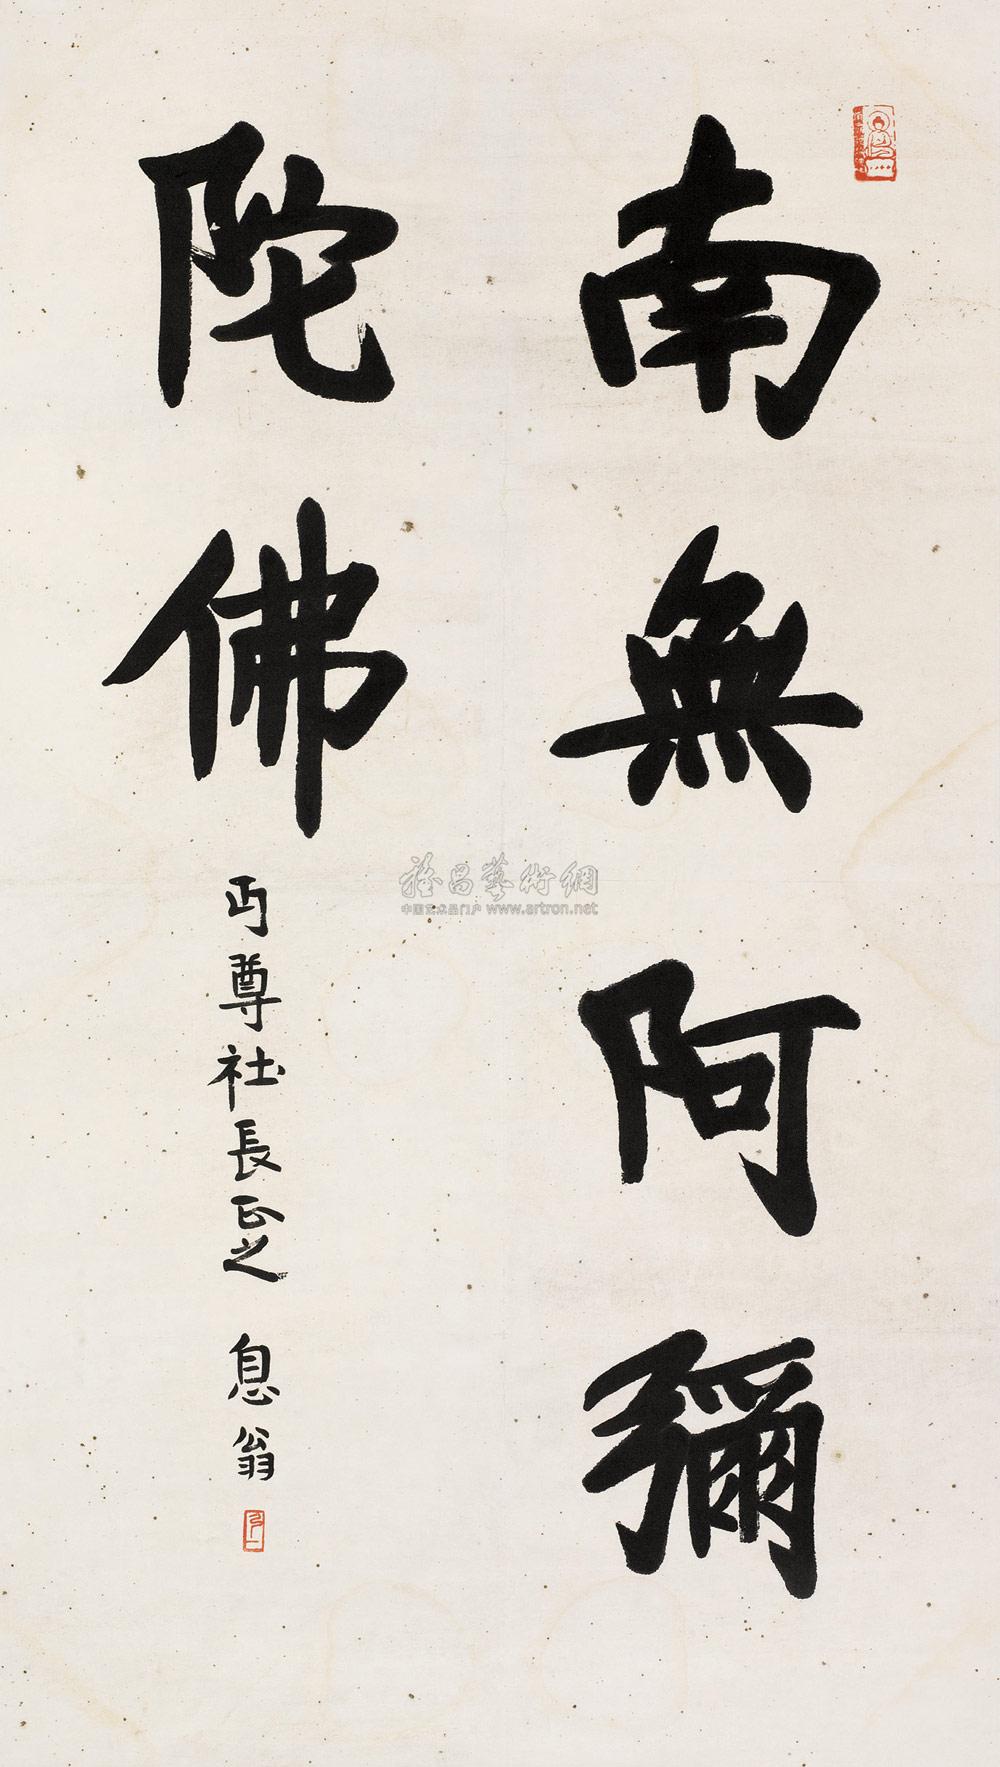 南無阿彌
陀佛
丏尊社長正之 息翁
雅昌藝術網
中国艺术品门户 www.artron.net